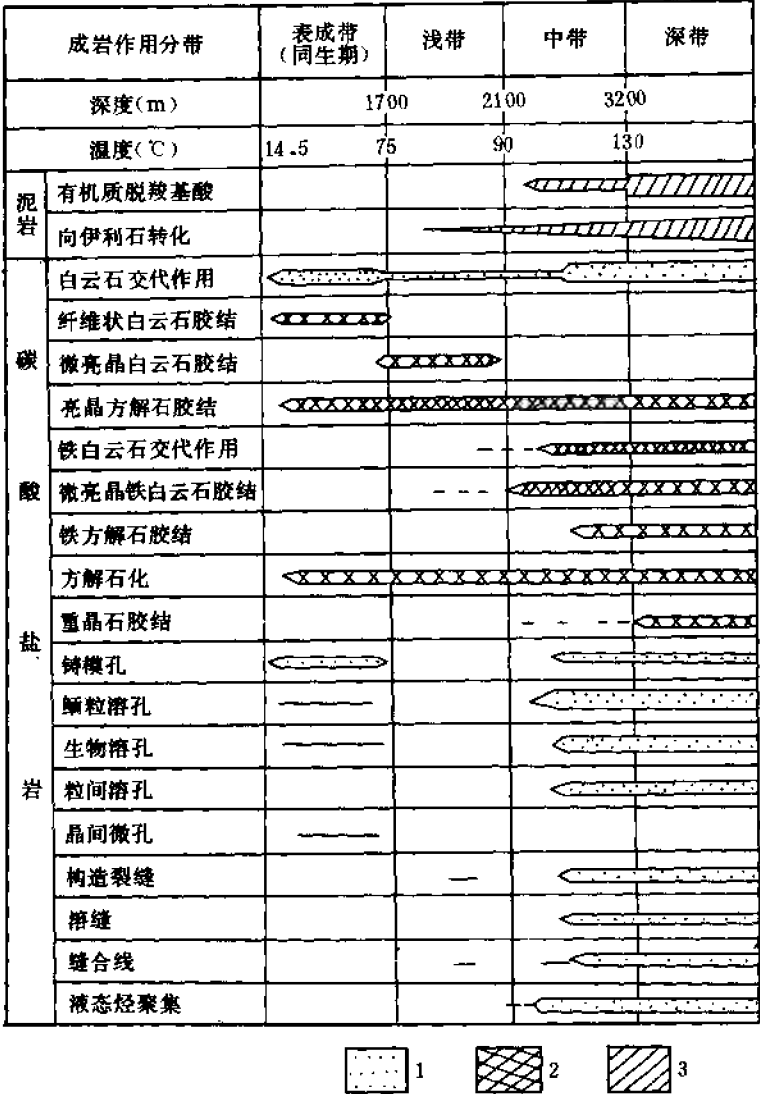 成岩作用分带 表成带 浅带 中带 深带
(同生期)
深度(m) 1700 2100 3200
温度(℃) 14.5 75 90 130
泥岩
有机质脱羧基酸
向伊利石转化
碳酸盐岩
白云石交代作用
纤维状白云石胶结
微亮晶白云石胶结
亮晶方解石胶结
铁白云石交代作用
微亮晶铁白云石胶结
铁方解石胶结
方解石化
重晶石胶结
铸模孔
鲕粒溶孔
生物溶孔
粒间溶孔
晶间微孔
构造裂缝
溶缝
缝合线
液态烃聚集
1 2 3